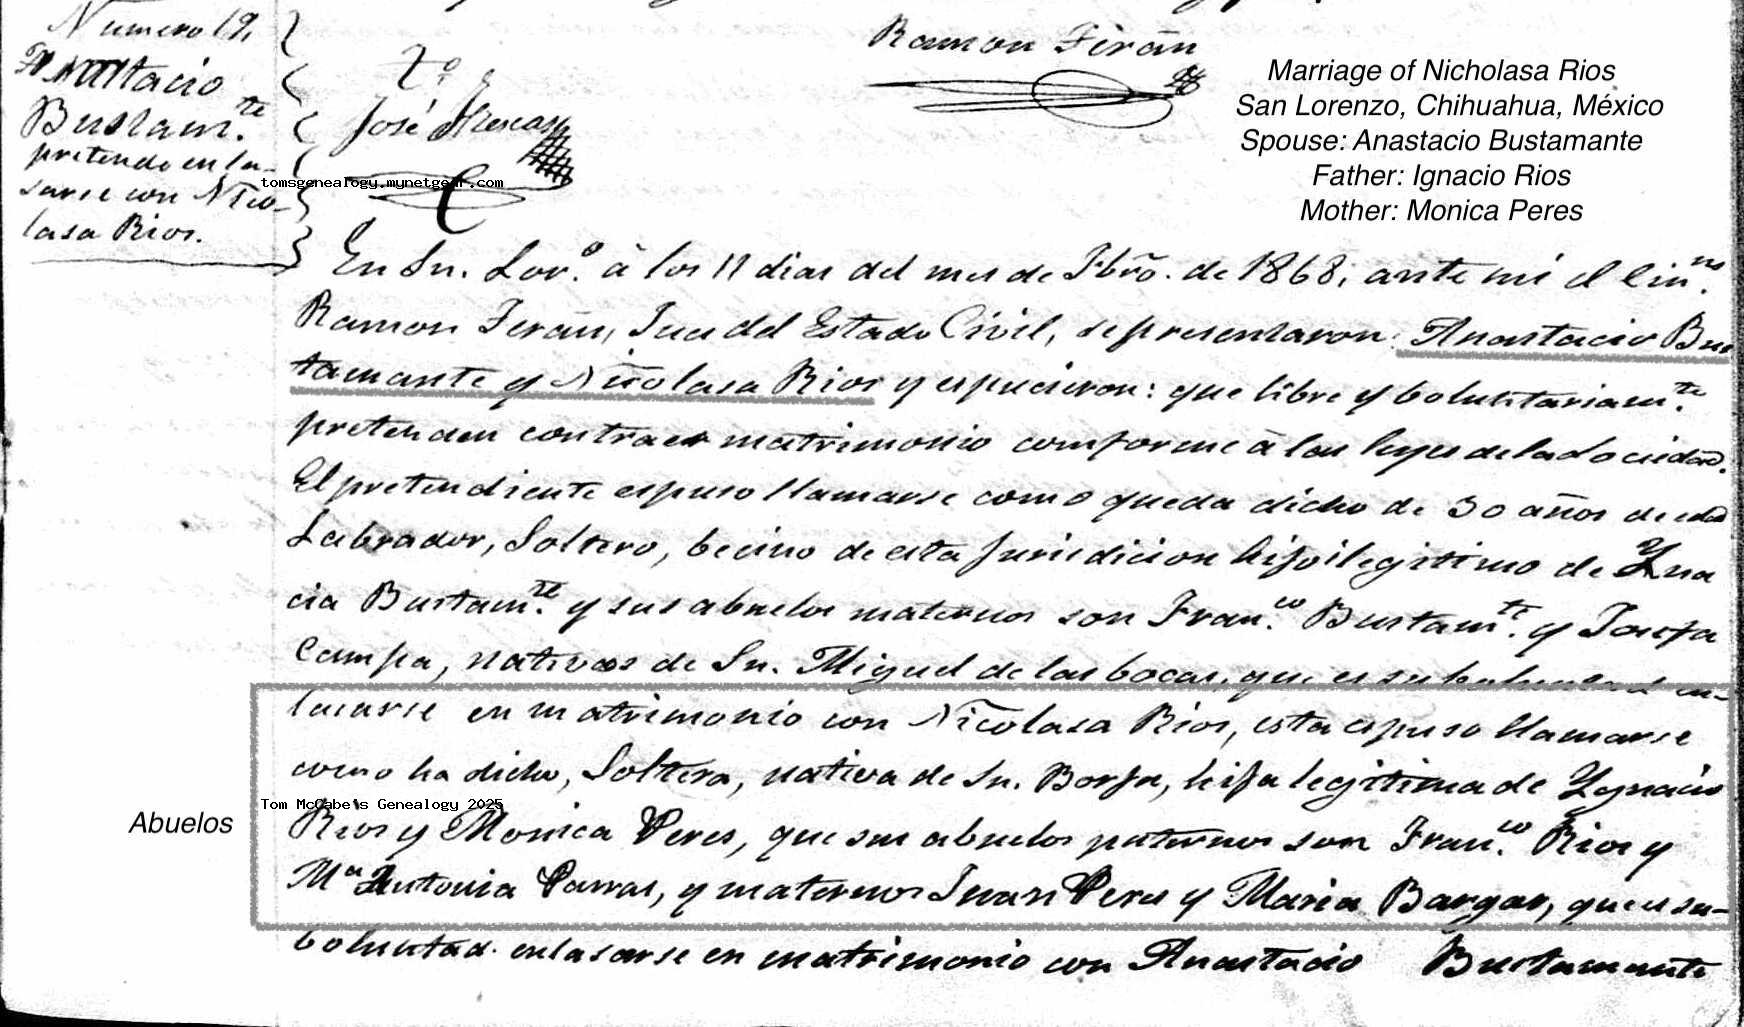 Numero 19,
Anastacio
Bustam.te
pretende enla-
sarse con Nico-
lasa Rios.
Ramon Terán
José
tomsgenealogy.mynetgear.com
Marriage of Nicholasa Rios
San Lorenzo, Chihuahua, México
Spouse: Anastacio Bustamante
Father: Ignacio Rios
Mother: Monica Peres
En Sn. Lor.o à los 11 dias del mes de Fbrõ. de 1868, ante mi el
Ramon Terán, Jues del Estado Civil, se presentaron: Anastacio Bus
tamante y Nicolasa Rios y espucieron: que libre y boluntariam.te
pretenden contraer matrimonio comforme à las leyes de la
El pretendiente espuso llamarse como queda dicho de 30 años de edad
Labrador, Soltero, becino de esta Jurisdicion hijo ilegitimo de Yna
cia Bustam.te y sus abuelos maternos son Fran.co Bustam.te y Josefa
Campa, nativos de Sn. Miguel de las bocas, que es su boluntad en-
lasarse en matrimonio con Nicolasa Rios, esta espuso llamarse
como ha dicho, Soltera, nativa de Sn. Borja, hija legitima de Ygnacio
Tom McCabe's Genealogy 2025
Abuelos
Rios y Monica Peres, que sus abuelos paternos son Fran.co Rios y
Ma Antonia Parras, y maternos Juan Peres y Maria Bargas, que es su-
boluntad enlasarse en matrimonio con Anastacio Bustamante